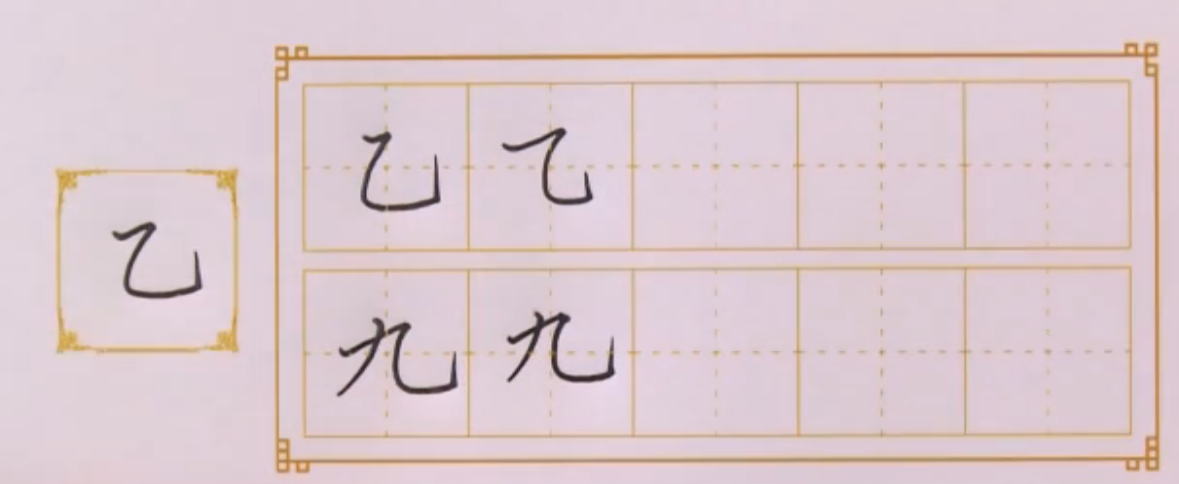 乙
乙 乁
九 九